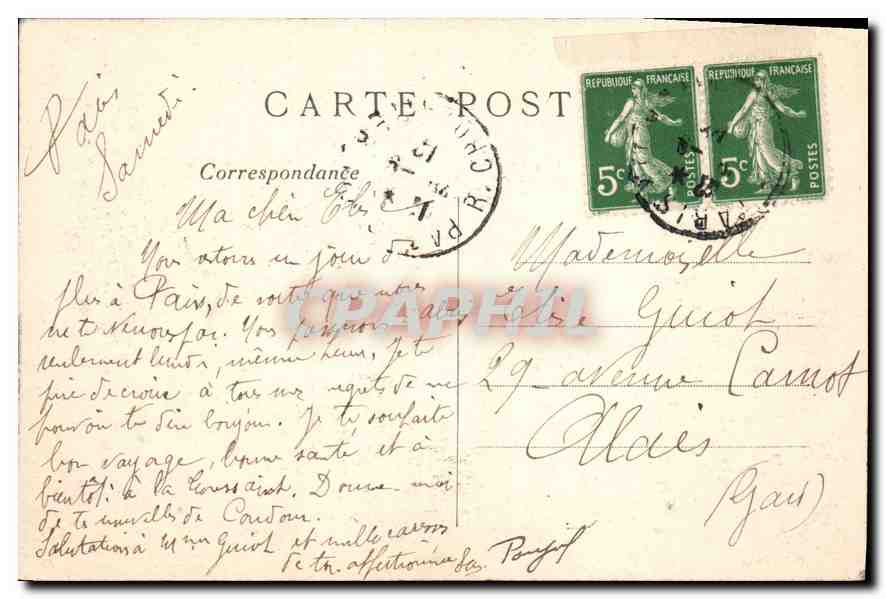 Paris
Samedi
CARTE POST
Correspondance
Ma chère Elise
Nous restons un jour de
plus à Paris, de sorte que nous
ne te verrons pas. Nous passerons à Alais
seulement lundi, même heure. Je te
prie de croire à tous mes regrets de ne
pouvoir te dire bonjour. Je te souhaite
bon voyage, bonne santé et à
bientôt à la Toussaint. Donne-moi
de tes nouvelles de Condom.
Salutations à Mme Guiot et mille caresses
de ton affectionnée
REPUBLIQUE FRANÇAISE
5c POSTES
REPUBLIQUE FRANÇAISE
5c POSTES
PARIS
PARIS
Mademoiselle
Elise Guiot
29 avenue Carnot
Alais
(Gard)
CPAPHIL